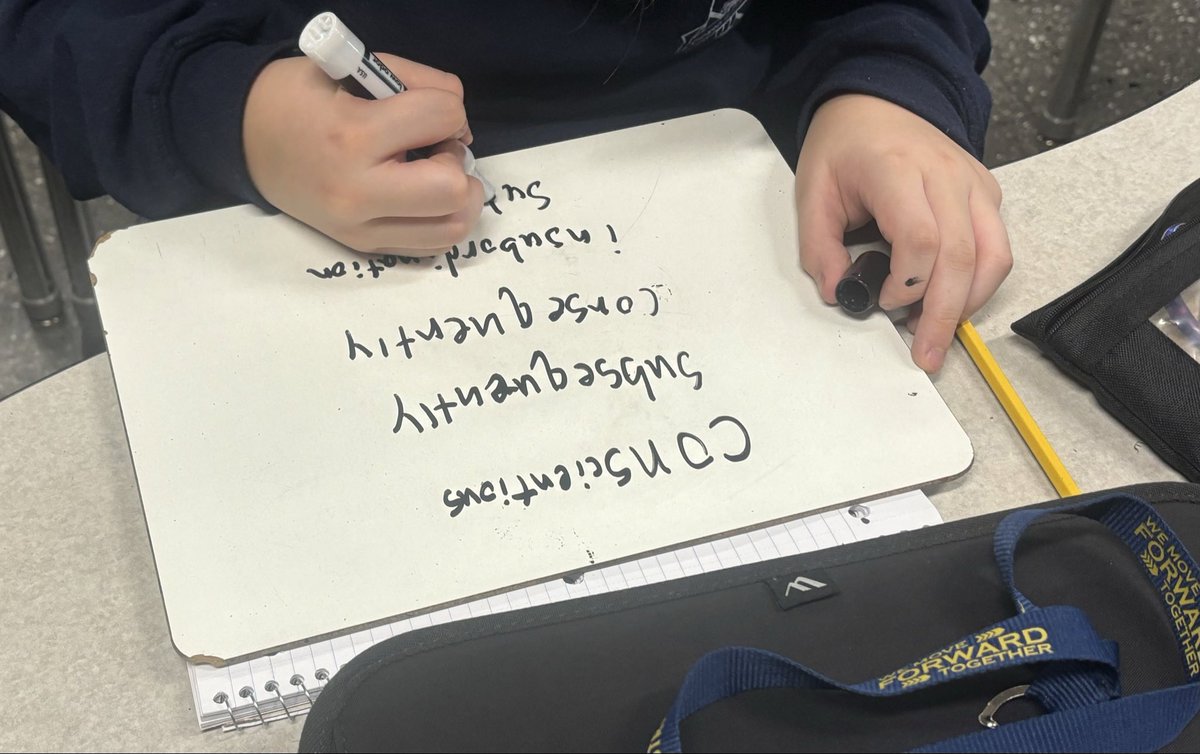 CONScientious
subsequently
consequently
insubordination
su
WE MOVE
FORWARD
TOGETHER
WE MOVE
FORWARD
TOGETHER
USA